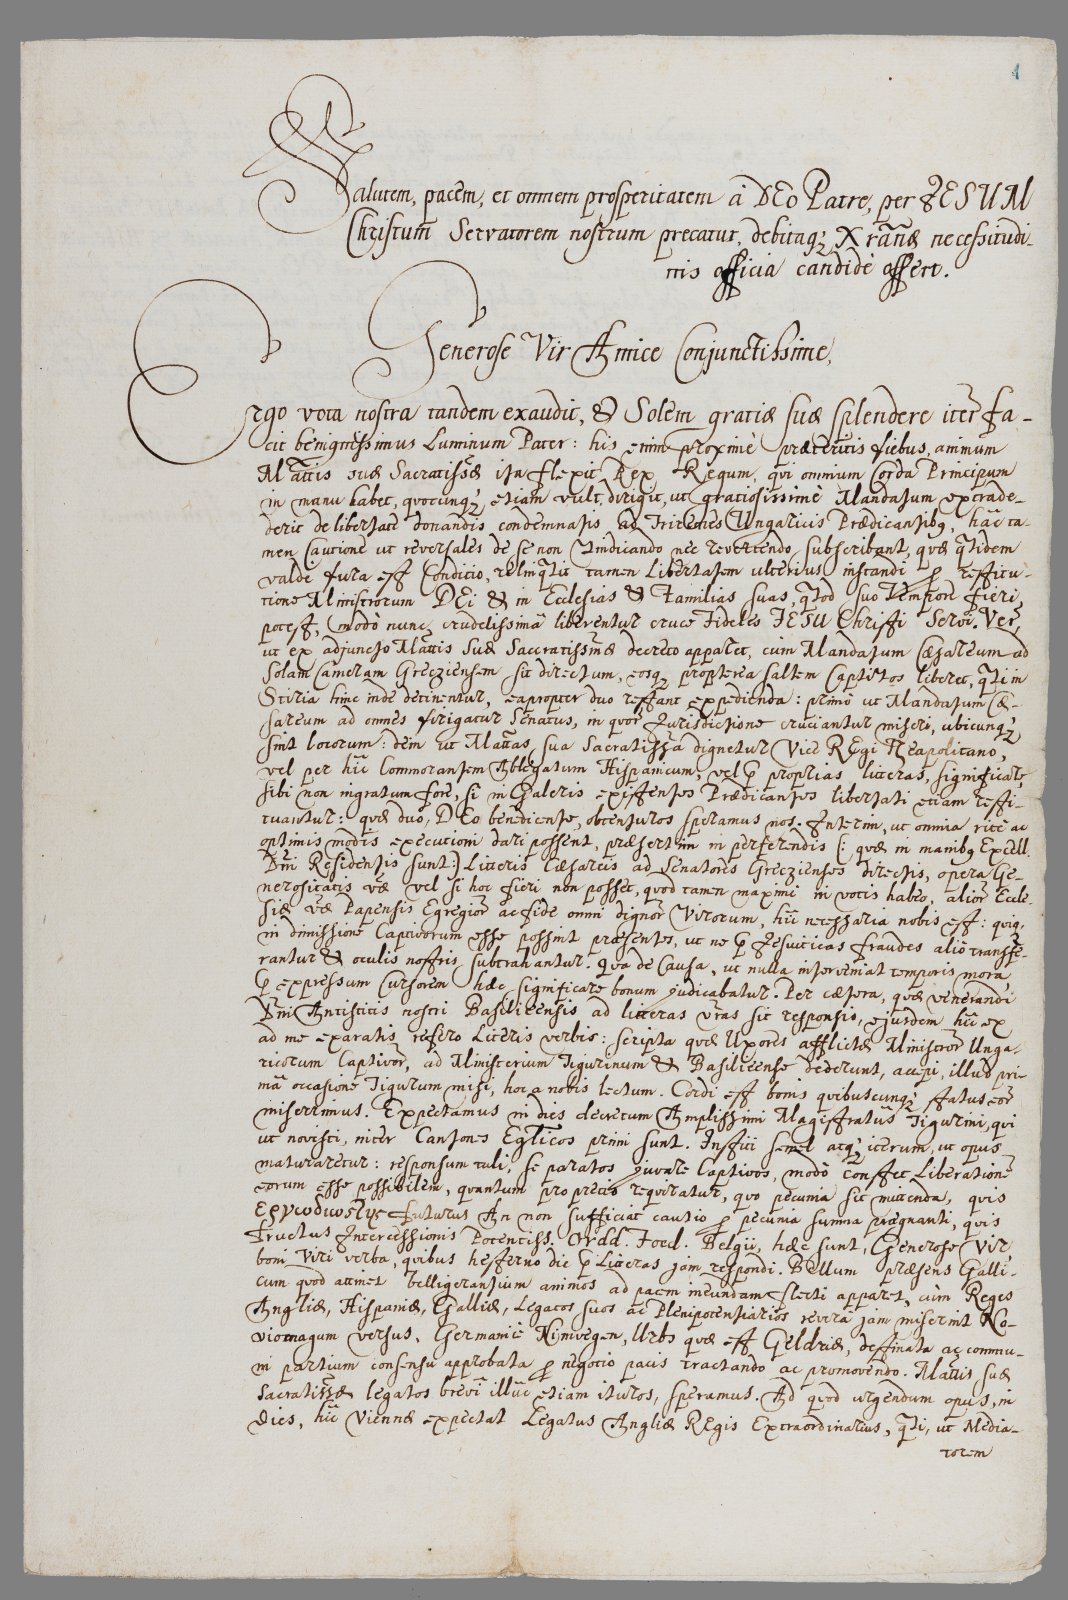 1
Salutem, pacem, et omnem prosperitatem à DEo Patre, per JESUM
Christum Servatorem nostrum precatur, debitaq; Xranæ necessitudi-
nis officia candidè offert.
Generose Vir Amice Conjunctissime,
Ergo vota nostra tandem exaudit, & Solem gratiæ suæ splendere iterũ fa-
cit benignissimus Luminum Pater: his enim proximè præteritis diebus, animum
Mattis suæ Sacratissæ ita flexit Rex Regum, qui omnium Corda Principum
in manu habet, quocunq; etiam vult, dirigit, ut gratiosissimè Mandatum extrade-
derit de libertate donandis condemnatis ad Triremes Ungaricis Prædicantibq, hac ta-
men Cautione ut reversales de se non vindicando nec revertendo subscribant, quæ qtidem
valde dura est Conditio, relinqtit tamen Libertatem ulterius instandi p restitu-
tione Ministrorum DEi & in Ecclesias & Familias suas, qtod suo Tempore fieri
potest, modò nunc crudelissimâ liberentur cruce Fideles JESU Christi Servi. Verũ,
ut ex adjuncto Mattis Suæ Sacratissimæ decreto apparet, cum Mandatum Cæsareum ad
Solam Cameram Grecziensem sit directum, eosq; propterea saltem Captivos liberet, qti in
Stiria hinc inde detinentur, eapropter duo restant expedienda: primò ut Mandatum Cæ-
sareum ad omnes dirigatur Senatus, in quorũ Jurisdictione cruciantur miseri, ubicunq;
sint locorum: dein ut Mattas, sua Sacratissa dignetur Vice REgi Neapolitano,
vel per hic Commorantem Ablegatum Hispanicum, vel p proprias litteras, significare,
sibi non ingratum fore, si in Galeris existentes Prædicantes libertati etiam resti-
tuantur: quæ duo, DEo benedicente, obtenturos speramus nos. Interim, ut omnia ritè ac
optimis modis executioni dari possent, præsertim in perferendis (: quæ in manibq Excell.
Dni Residentis sunt:) Litteris Cæsareis ad Senatores Greczienses directis, opera Ge-
nerositatis væ vel si hoc fieri non posset, quod tamen maximè in votis habeo, aliorũ Eccle-
siæ væ Papensis Egregiorũ ac fide omni dignorũ Virorum, hic necessaria nobis est: quiq,
in dimissione Captivorum esse possint præsentes, ut ne p Jesuiticas fraudes aliò transfe-
rantur & oculis nostris subtrahantur. Qua de Causa, ut nulla interveniat temporis mora,
p expressum Cursorem hæc significare bonum judicabatur. Per cætera, quæ venerandi
Dni Antistitis nostri Basileensis ad litteras vras sit responsio, ejusdem hic ex
ad me exaratis refero Literis verbis: scripta quæ Uxores afflictæ Ministrorũ Unga-
ricorum Captivorũ, ad Ministerium Tigurinum & Basileense dederunt, accepi, illud pri-
mâ occasione Tigurum misi, hoc a nobis lectum. Cordi est bonis quibuscunq; status eorũ
miserrimus. Expectamus in dies decretum Amplissimi Magistratus Tigurini, qui
ut novisti, inter Cantones Eglicos primi sunt. Institi semel atq; iterum, ut opus
maturaretur: responsum tuli, se paratos juvare Captivos, modò constet Liberatione
eorum esse possibilem, quantum pro pretio requiratur, quo pecunia sit mittenda, quis
futurus An non sufficiat cautio p pecunia summa prægnanti, quis
Fructus Intercessionis Potentiss. Ordd. Foed. Belgii, hæc sunt, Generose Vir,
boni Viri verba, quibus hesterno die p Litteras jam respondi. Bellum præsens Galli-
cum quod attinet belligerantium animos ad pacem ineundam flecti apparet, cum Reges
Angliæ, Hispaniæ, Galliæ, Legatos suos ac Plenipotentiarios reverâ jam miserint No-
viomagum versus, Germanicè Nimvegen, Urbs quæ est Geldriæ, destinata ac commu-
ni partium consensu approbata p negotio pacis tractando ac promovendo. Mattis suæ
Sacratissæ legatos brevi illuc etiam ituros, speramus. Ad quod urgendum opus, in
dies, hic Viennæ expectat Legatus Angliæ REgis Extraordinarius, qti, ut Media-
torem